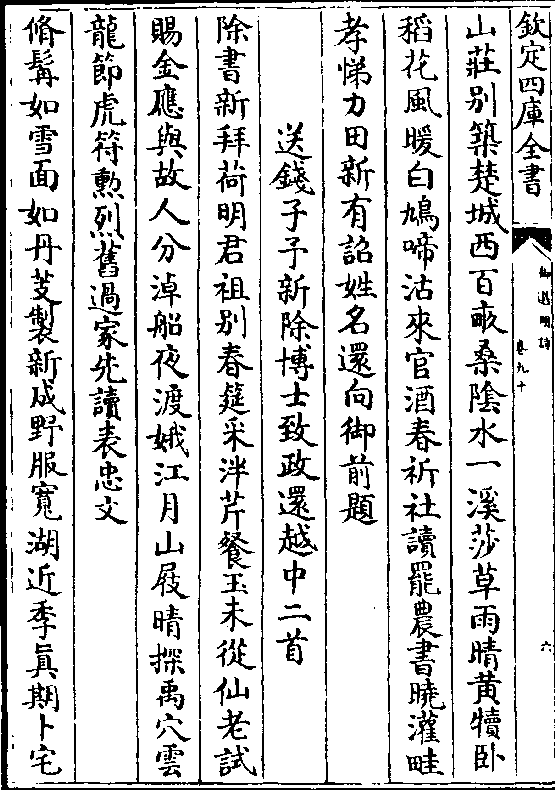 欽定四庫全書
御選明詩
卷九十
六
山莊别築楚城西百畝桑陰水一溪莎草雨晴黄犢卧
稻花風暖白鳩啼沽來官酒春祈社讀罷農書曉灌畦
孝悌力田新有詔姓名還向御前題
送錢子予新除博士致政還越中二首
除書新拜荷明君祖别春筵采泮芹餐玉未從仙老試
賜金應與故人分淖船夜渡娥江月山屐晴探禹穴雲
龍節虎符勲烈舊過家先讀表忠文
脩髯如雪面如丹芰製新成野服寛湖近季真期卜宅